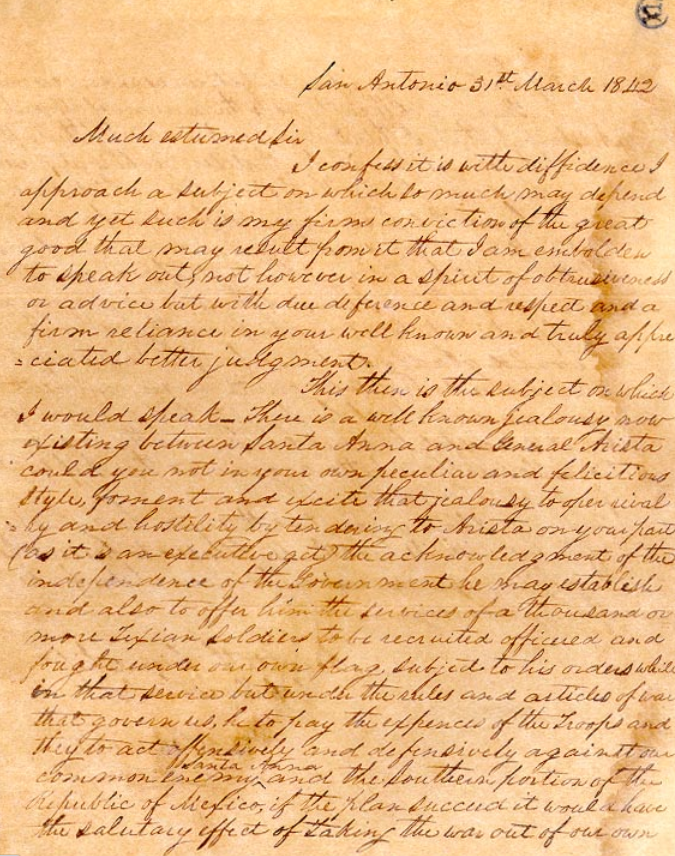 San Antonio 31st March 1842
Much esteemed Sir
I confess it is with diffidence I
approach a subject on which so much may depend
and yet such is my firm conviction of the great
good that may result from it that I am embolden
to speak out, not however in a spirit of obtrusiveness
or advice but with due deference and respect and a
firm reliance in your well known and truly appre
=ciated better judgment.
This then is the subject on which
I would speak_ There is a well known jealousy now
existing between Santa Anna and General Arista
could you not in your own peculiar and felicitious
style, foment and excite that jealousy to open rival
=ry and hostility by tendering to Arista on your part
(as it is an executive act) the acknowledgment of the
independence of the Government he may establish
and also to offer him the services of a thousand or
more Texian Soldiers to be recruited officered and
fought under our own flag, subject to his orders while
in that service but under the rules and articles of war
that govern us, he to pay the expences of the Troops and
they to act offensively and defensively against our
Santa Anna
common enemy, and the Southern portion of the
Republic of Mexico, if the plan succeed it would have
the salutary effect of taking the war out of our own